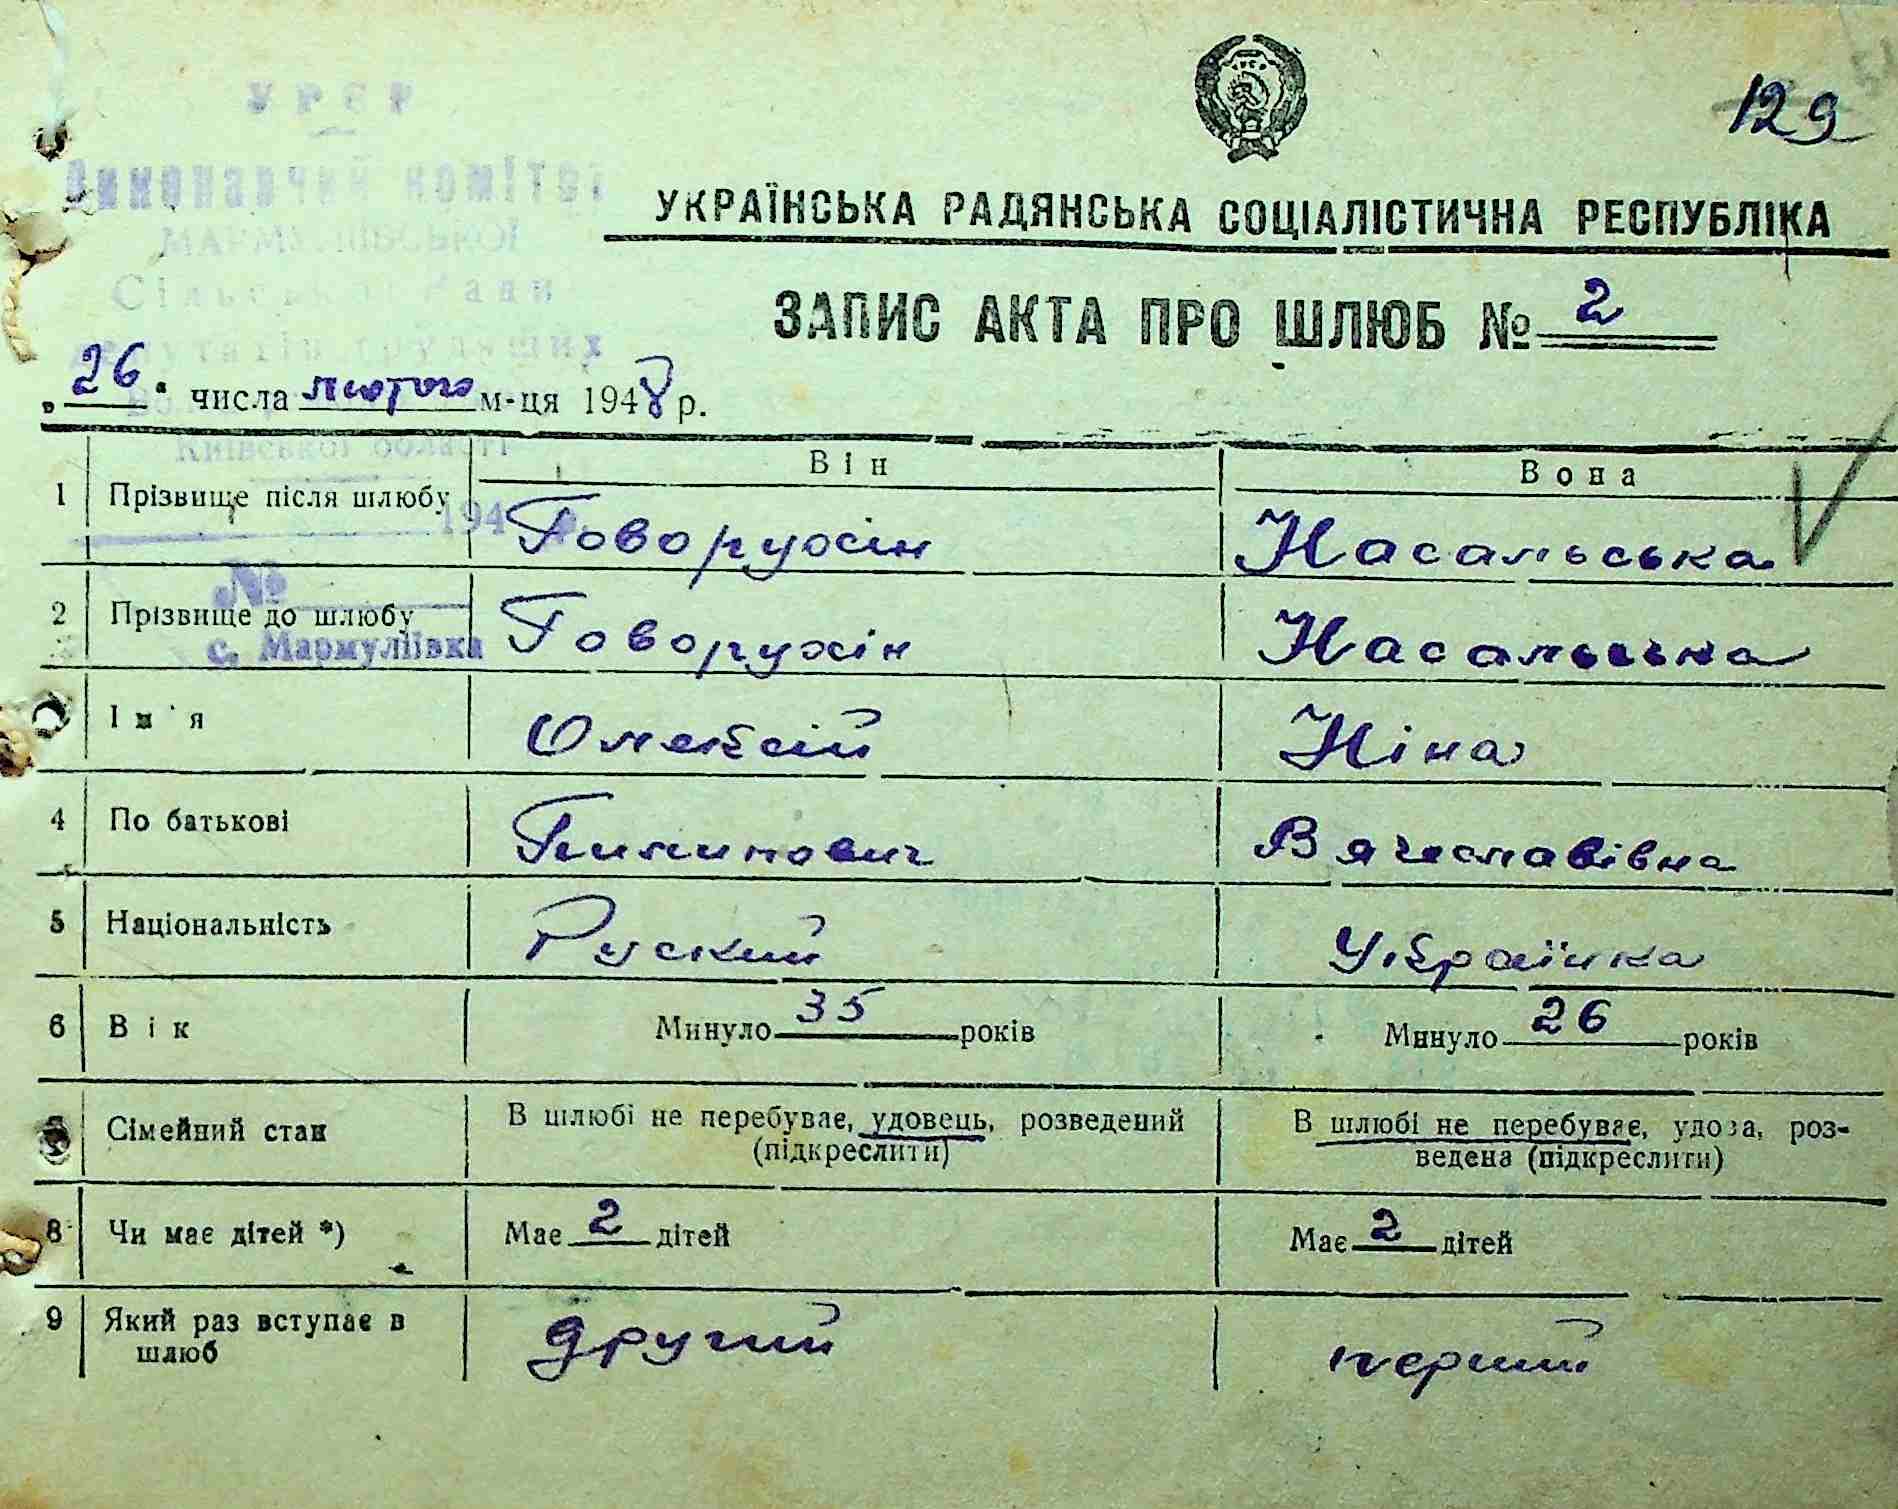 129
УРСР
Виконавчий комітет
МАРМУЛІЇВСЬКОЇ
Сільської Ради
депутатів трудящих
Київської області
194
№
с. Мармуліївка
УКРАЇНСЬКА РАДЯНСЬКА СОЦІАЛІСТИЧНА РЕСПУБЛІКА
ЗАПИС АКТА ПРО ШЛЮБ № 2
„26“ числа лютого м-ця 1948 р.
Він Вона
1 Прізвище після шлюбу Говорухін Насальська
2 Прізвище до шлюбу Говорухін Насальська
Ім'я Олексій Ніна
4 По батькові Вячеславівна
5 Національність Руский Українка
6 Вік Минуло 35 років Минуло 26 років
Сімейний стан В шлюбі не перебуває, удовець, розведений (підкреслити) В шлюбі не перебуває, удова, розведена (підкреслити)
8 Чи має дітей *) Має 2 дітей Має 2 дітей
9 Який раз вступає в шлюб другий перший